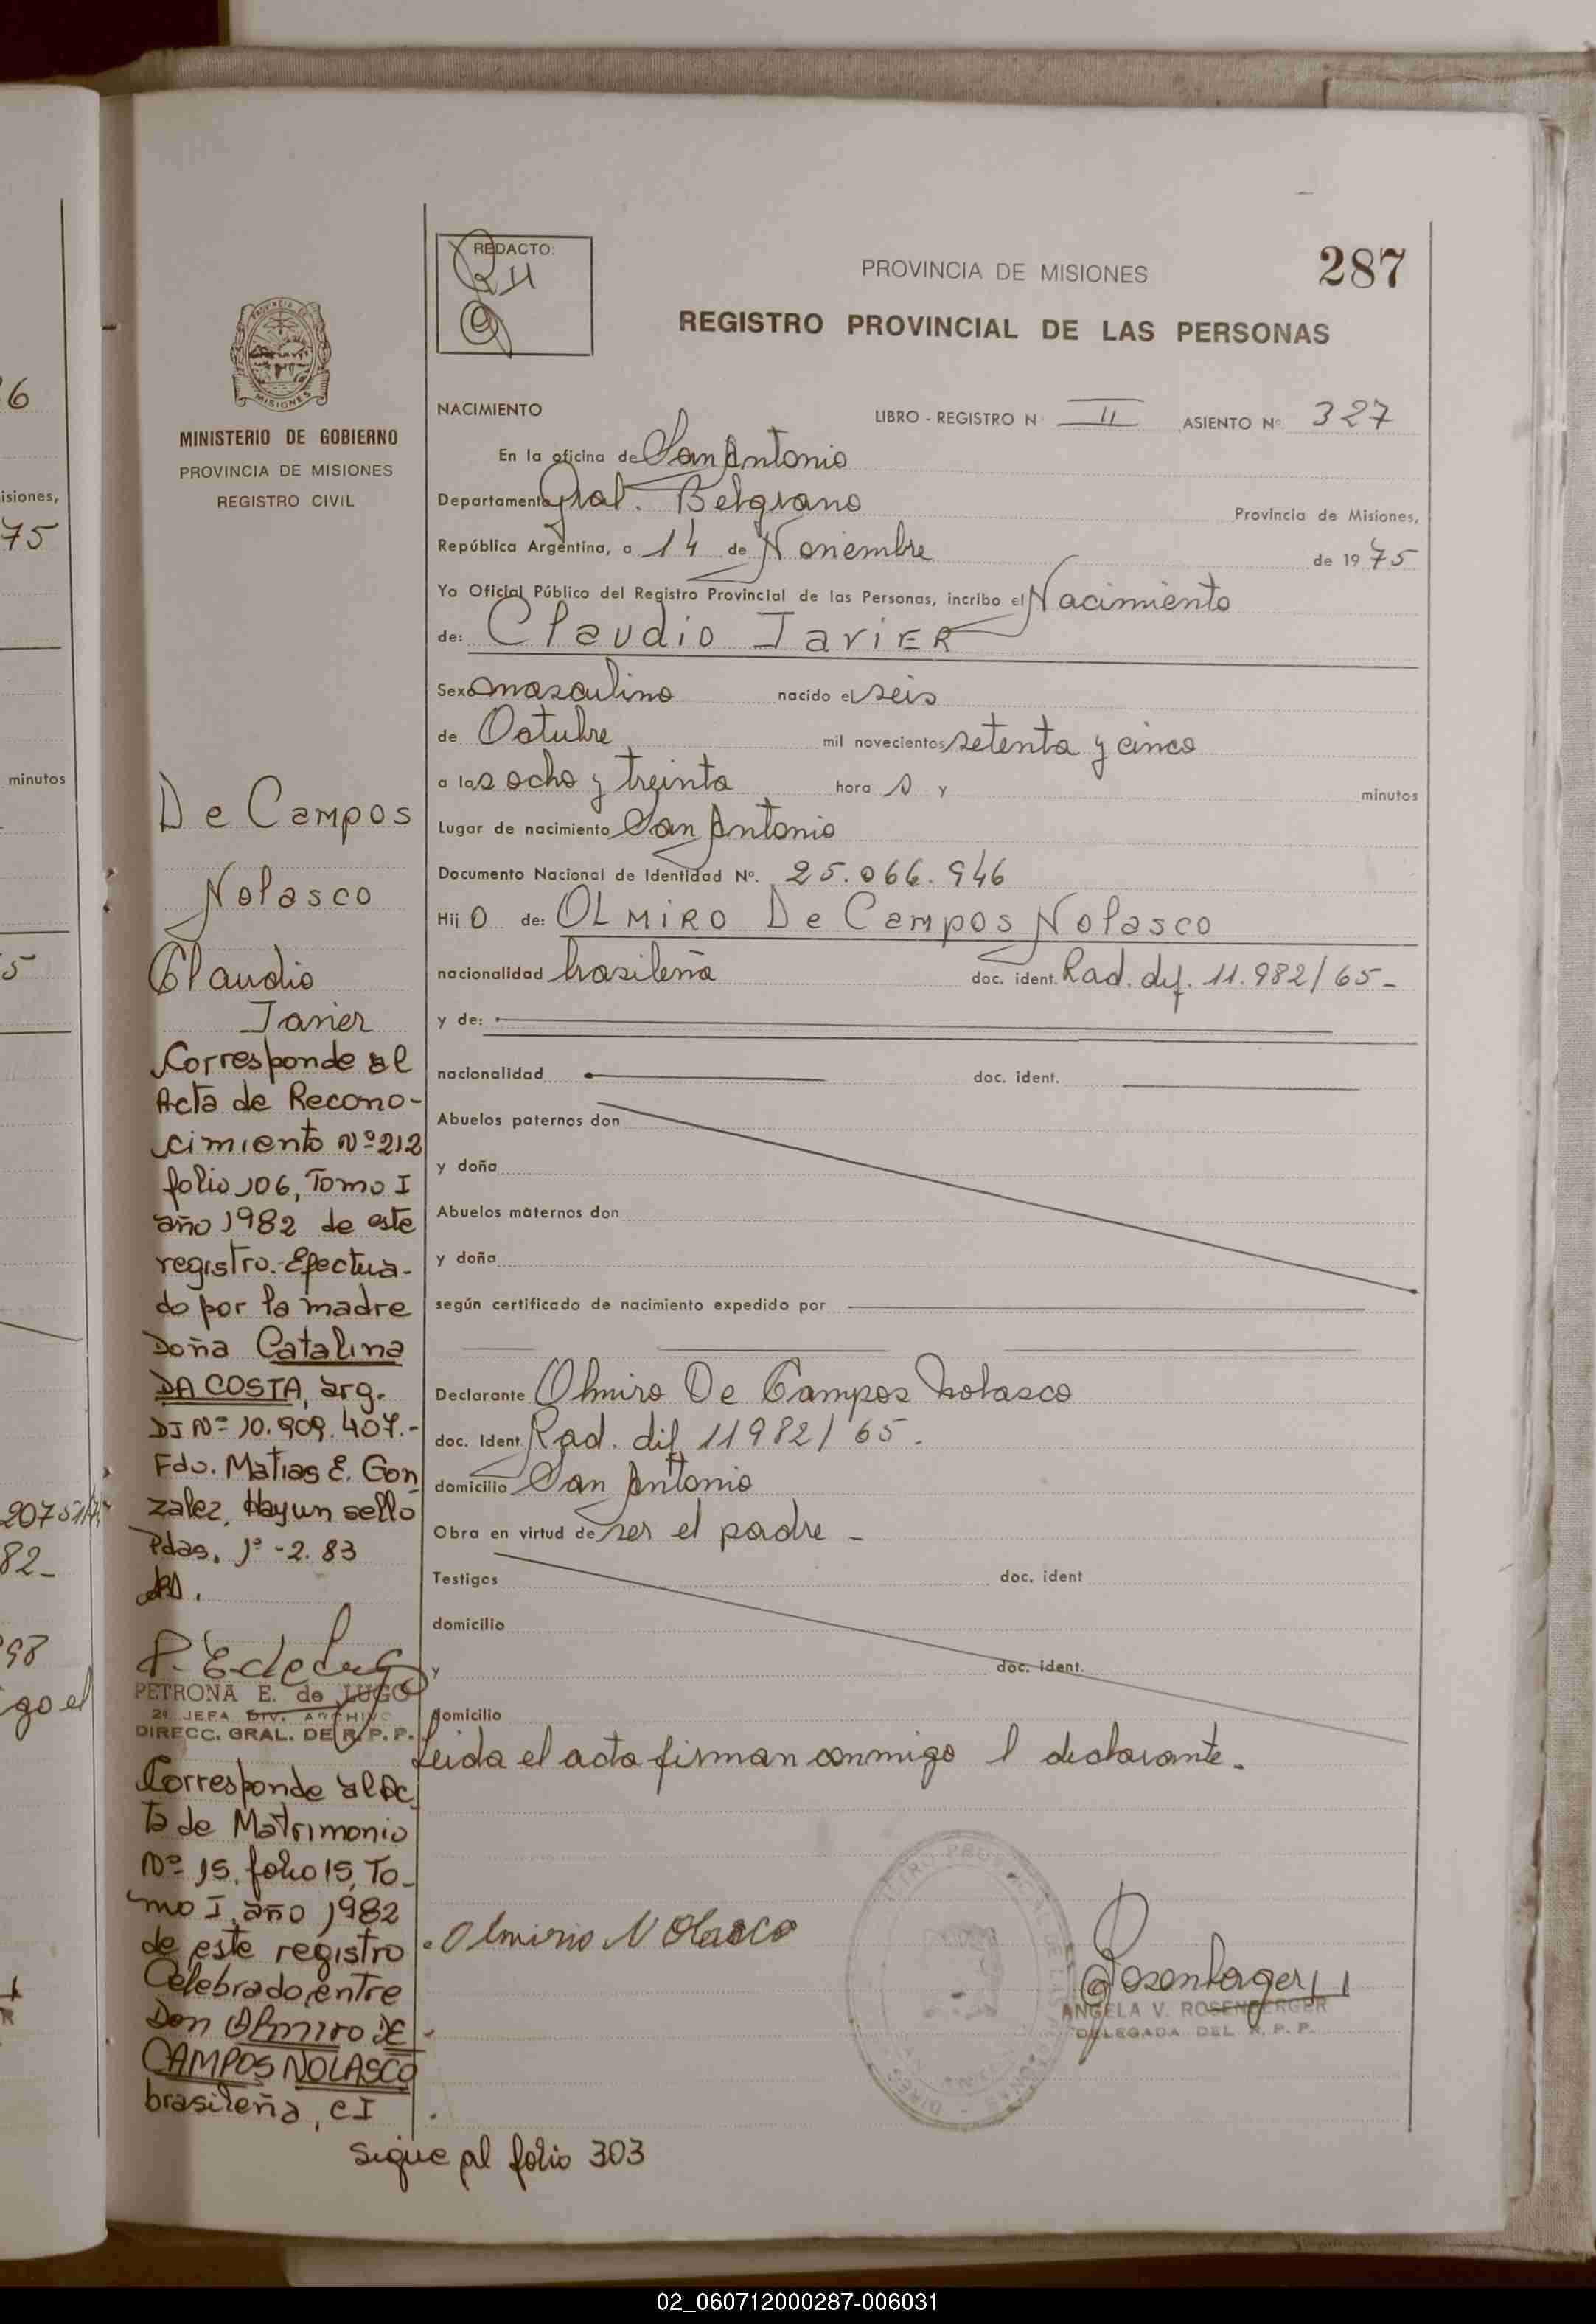 6
isiones,
75
minutos
5
82-
98
go el
REDACTO:
PROVINCIA DE MISIONES
287
REGISTRO PROVINCIAL DE LAS PERSONAS
PROVINCIA DE
MISIONES
MINISTERIO DE GOBIERNO
PROVINCIA DE MISIONES
REGISTRO CIVIL
De Campos
Nolasco
Claudio
Javier
Corresponde al
Acta de Recono-
cimiento Nº 212
folio 106, Tomo I
año 1982 de este
registro.- Efectua-
do por la madre
Doña Catalina
DA COSTA, arg.
DI Nº 10.909.407.-
Fdo. Matias E. Gon
zalez. Hay un sello
Pdas. 1º-2.83
P. E de Lugo
PETRONA E. de LUGO
2ª JEFA DIV. ARCHIVO
DIRECC. GRAL. DE R. P. P.
Corresponde al Ac
ta de Matrimonio
Nº 15, folio 15, To-
mo I, año 1982
de este registro
Celebrado entre
Don Olmiro DE
CAMPOS NOLASCO
brasileña, CI
NACIMIENTO LIBRO - REGISTRO N II ASIENTO Nº 327
En la oficina de San Antonio
Departamento Gral. Belgrano Provincia de Misiones,
República Argentina, a 14 de Noviembre de 1975
Yo Oficial Público del Registro Provincial de las Personas, incribo el Nacimiento
de: Claudio Javier
Sexo masculino nacido el seis
de Octubre mil novecientos setenta y cinco
a las ocho y treinta hora s y minutos
Lugar de nacimiento San Antonio
Documento Nacional de Identidad Nº. 25.066.946
Hijo de: OLMIRO De Campos Nolasco
nacionalidad brasileña doc. ident. Rad. def. 11.982/65-
y de:
nacionalidad doc. ident.
Abuelos paternos don
y doña
Abuelos maternos don
y doña
según certificado de nacimiento expedido por
Declarante Olmiro De Campos Nolasco
doc. Ident. Rad. dif 11982/65.
domicilio San Antonio
Obra en virtud de ser el padre -
Testigos doc. ident
domicilio
y doc. ident.
domicilio
Leida el acta firman conmigo l declarante.
Olmirio Nolasco
Rosenberger
ANGELA V. ROSENBERGER
DELEGADA DEL R. P. P.
sigue al folio 303
02_060712000287-006031